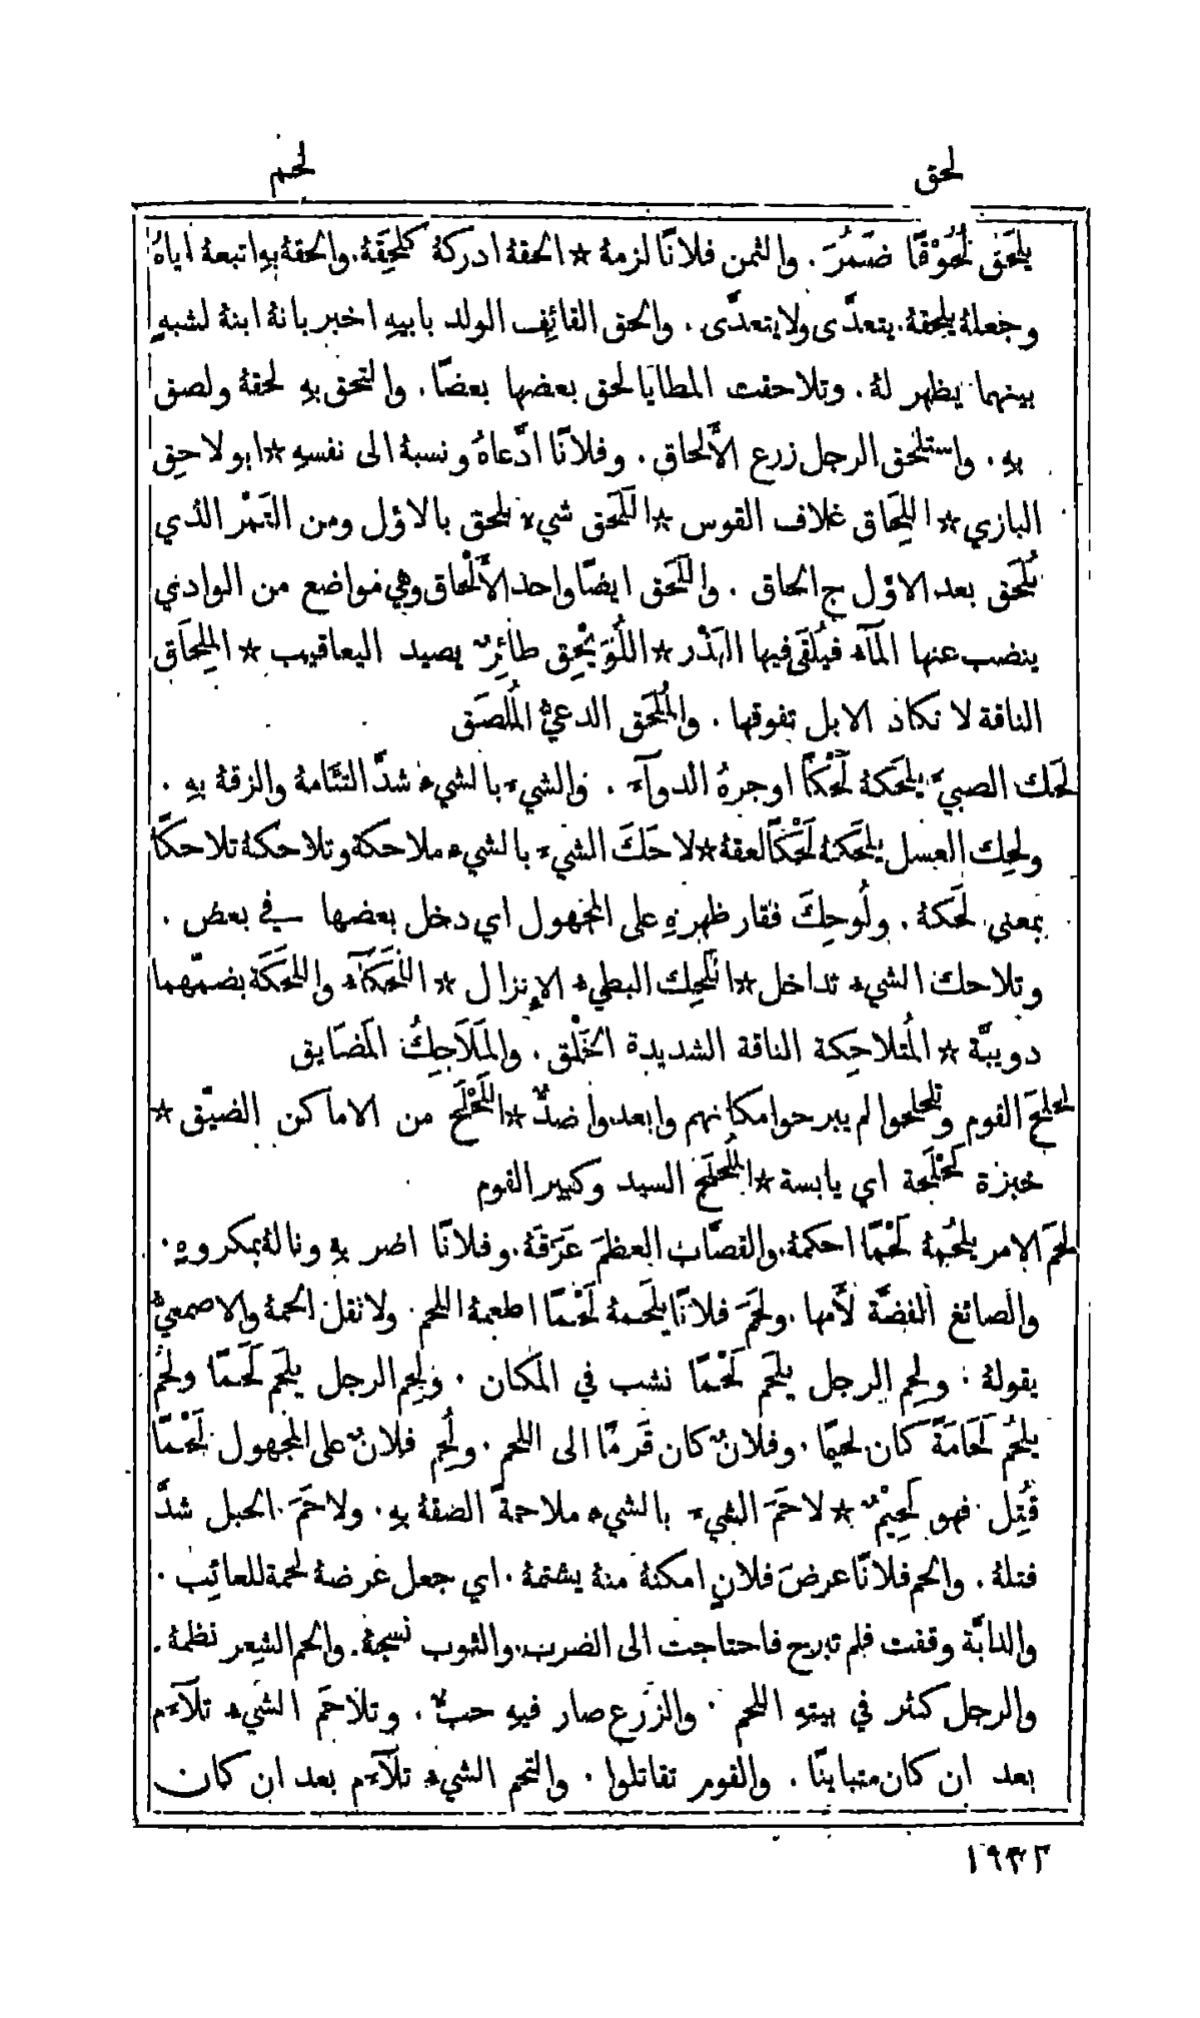 لحق
لحم
يلحَق لُحُوْقًا ضَمُرَ . والثمن فلانًا لزمهُ ☆ الحقهُ ادركهُ كلَحِقَهُ. والحقهُ بهِ اتبعهُ اياهُ
وجعلهُ يلحقهُ. يتعدَّى ولا يتعدَّى . والحق القائِف الولد بابيهِ اخبر بانهُ ابنهُ لشبهٍ
بينهما يظهر لهُ . وتلاحقت المطايا لحق بعضها بعضًا . والتحق بهِ لحقهُ ولصق
بهِ . واستلحق الرجل زرع الأَلحاق . وفلانًا ادَّعاهُ ونسبهُ الى نفسهِ ☆ ابو لاحِق
البازي ☆ اللِّحَاق غلاف القوس ☆ اللَّحَق شيءٌ يلحق بالاوَّل ومن التَمْر الذي
يُلحَق بعد الاوَّل ج الحاق . واللَّحَق ايضًا واحد الأَلْحاق وهي مواضع من الوادي
ينضب عنها المآء فيُلقَى فيها البَذْر ☆ اللُّوَيْحِق طائِرٌ يصيد اليعاقيب ☆ المِلحَاق
الناقة لا تكاد الابل تفوقها . والمُلحَق الدعيُّ المُلصَق
لحَك الصبيَّ يلحَكهُ لَحْكًا اوجرهُ الدوآء . والشيء بالشيء شدَّ التئَامهُ والزقهُ بهِ .
ولحِك العسل يلحَكهُ لَحْكًا لعقهُ ☆ لاحَكَ الشيء بالشيء ملاحكة وتلاحكهُ تلاحكًا
بمعنى لحَكهُ . ولُوحِكَ فقار ظهرهِ على المجهول اي دخل بعضها في بعض .
وتلاحك الشيء تداخل ☆ اللَّحِك البطيء الإِنزال ☆ اللُّحَكَآء واللُّحَكَة بضمّهما
دويبَّة ☆ المُتلاحِكة الناقة الشديدة الخَلْق . والمَلَاحِكُ المَضَايق
لحلحَ القوم وتلحلحوا لم يبرحوا مكانهم وابعدوا ضدٌّ ☆ اللَّحْلَح من الاماكن الضيّق ☆
خبزة لَحْلَحة اي يابسة ☆ المُلحلَح السيد وكبير القوم
لحَمَ الامر يلحُمهُ لَحْمًا احكمهُ. والقصَّاب العظمَ عَرَقَهُ. وفلانًا اضر بهِ ونالهُ بمكروهٍ .
والصائغ الفضَّة لأَمها . ولحَمَ فلانًا يلحَمهُ لَحْمًا اطعمهُ اللحم . ولا تقل الحمهُ والاصمعيُّ
يقولهُ . ولحِم الرجل يلحَم لَحْمًا نشب في المكان . ولحِم الرجل يلحَم لَحَمًا ولحُم
يلحُم لَحَامَةً كان لحيمًا . وفلانٌ كان قَرمًا الى اللحم . ولُحِم فلانٌ على المجهول لَحْمًا
قُتِل فهو لَحِيْمٌ ☆ لاحَمَ الشيء بالشيء ملاحمةً الصقهُ بهِ . ولاحَمَ الحبل شدَّ
فتلهُ . والحم فلانًا عرضَ فلانٍ امكنهُ منهُ يشتمهُ . اي جعل عرضهُ لحمة للعائِب .
والدابَّة وقفت فلم تبرح فاحتاجت الى الضرب. والثوب نسجهُ. والحم الشِعر نظمهُ .
والرجل كثر في بيتهِ اللحم . والزرع صار فيهِ حبٌّ . وتلاحَم الشيء تلآءَم
بعد ان كان متباينًا . والقوم تقاتلوا . والتحم الشيء تلآءَم بعد ان كان
١٩٣٢